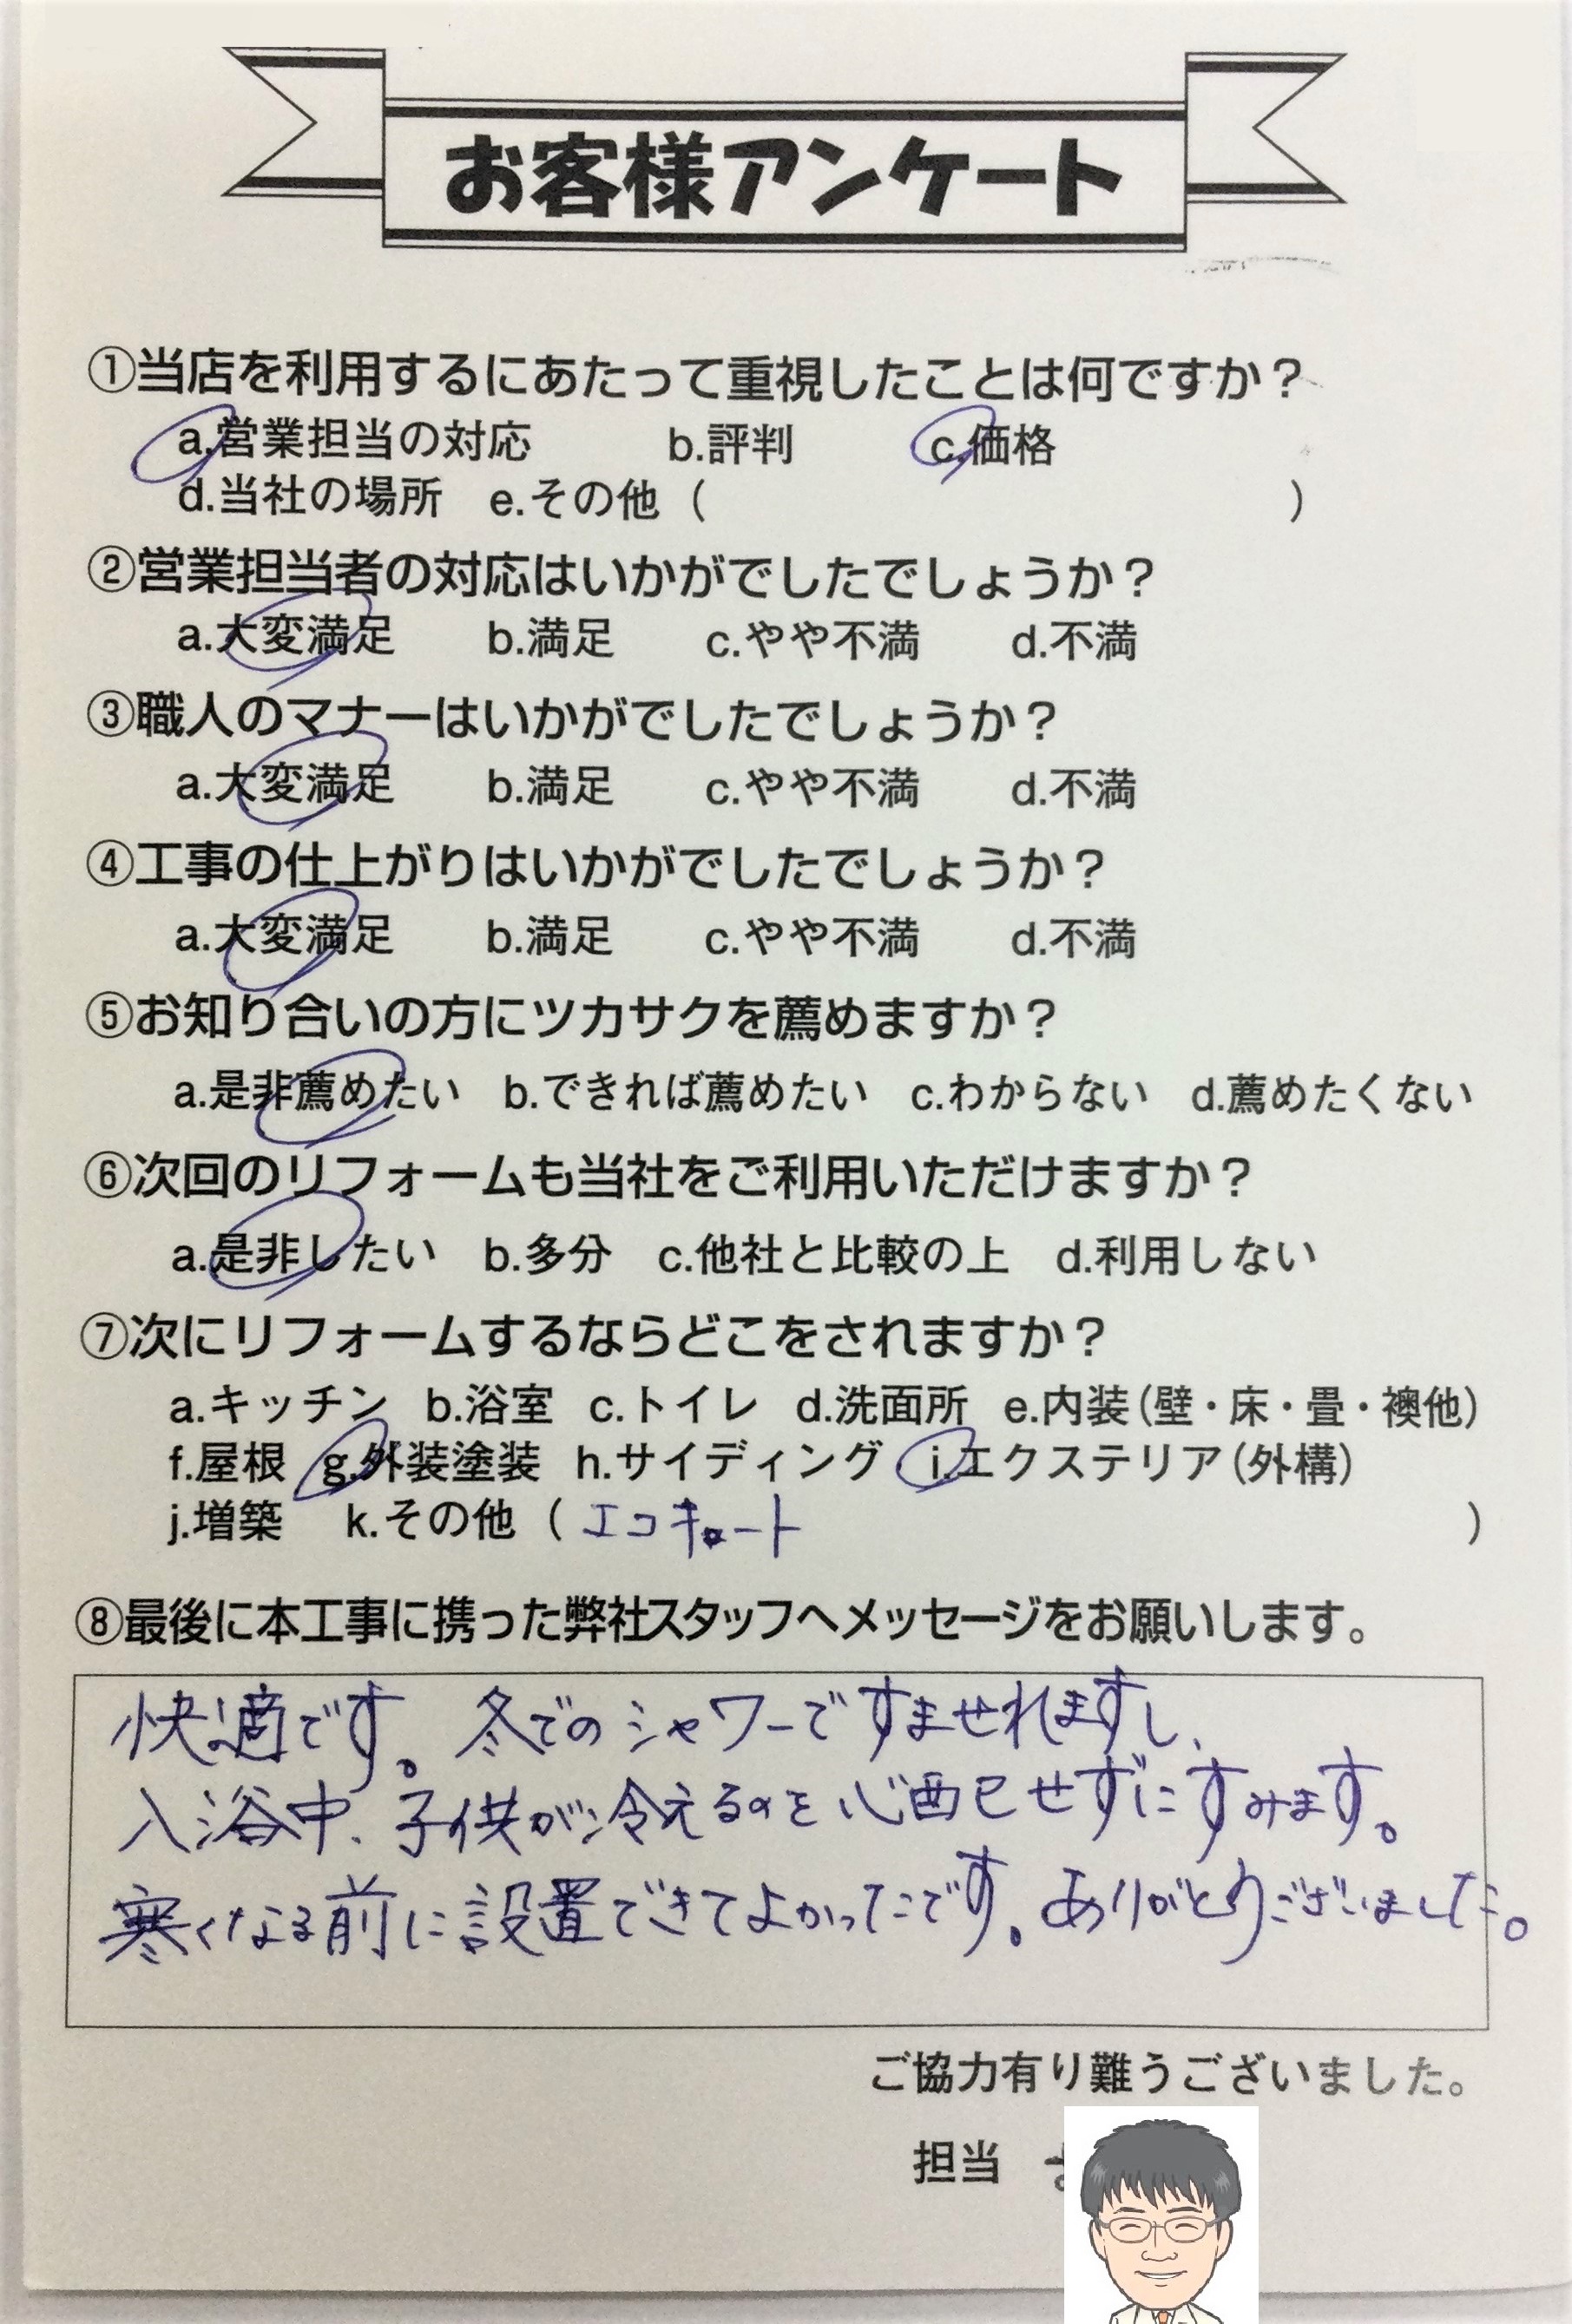 お客様アンケート
①当店を利用するにあたって重視したことは何ですか？
a.営業担当の対応 b.評判 c.価格
d.当社の場所 e.その他（ ）
②営業担当者の対応はいかがでしたでしょうか？
a.大変満足 b.満足 c.やや不満 d.不満
③職人のマナーはいかがでしたでしょうか？
a.大変満足 b.満足 c.やや不満 d.不満
④工事の仕上がりはいかがでしたでしょうか？
a.大変満足 b.満足 c.やや不満 d.不満
⑤お知り合いの方にツカサクを薦めますか？
a.是非薦めたい b.できれば薦めたい c.わからない d.薦めたくない
⑥次回のリフォームも当社をご利用いただけますか？
a.是非したい b.多分 c.他社と比較の上 d.利用しない
⑦次にリフォームするならどこをされますか？
a.キッチン b.浴室 c.トイレ d.洗面所 e.内装(壁・床・畳・襖他)
f.屋根 g.外装塗装 h.サイディング i.エクステリア(外構)
j.増築 k.その他（エコキュート）
⑧最後に本工事に携った弊社スタッフへメッセージをお願いします。
快適です。冬でのシャワーですませれますし、
入浴中、子供が冷えるのを心配せずにすみます。
寒くなる前に設置できてよかったです。ありがとうございました。
ご協力有り難うございました。
担当